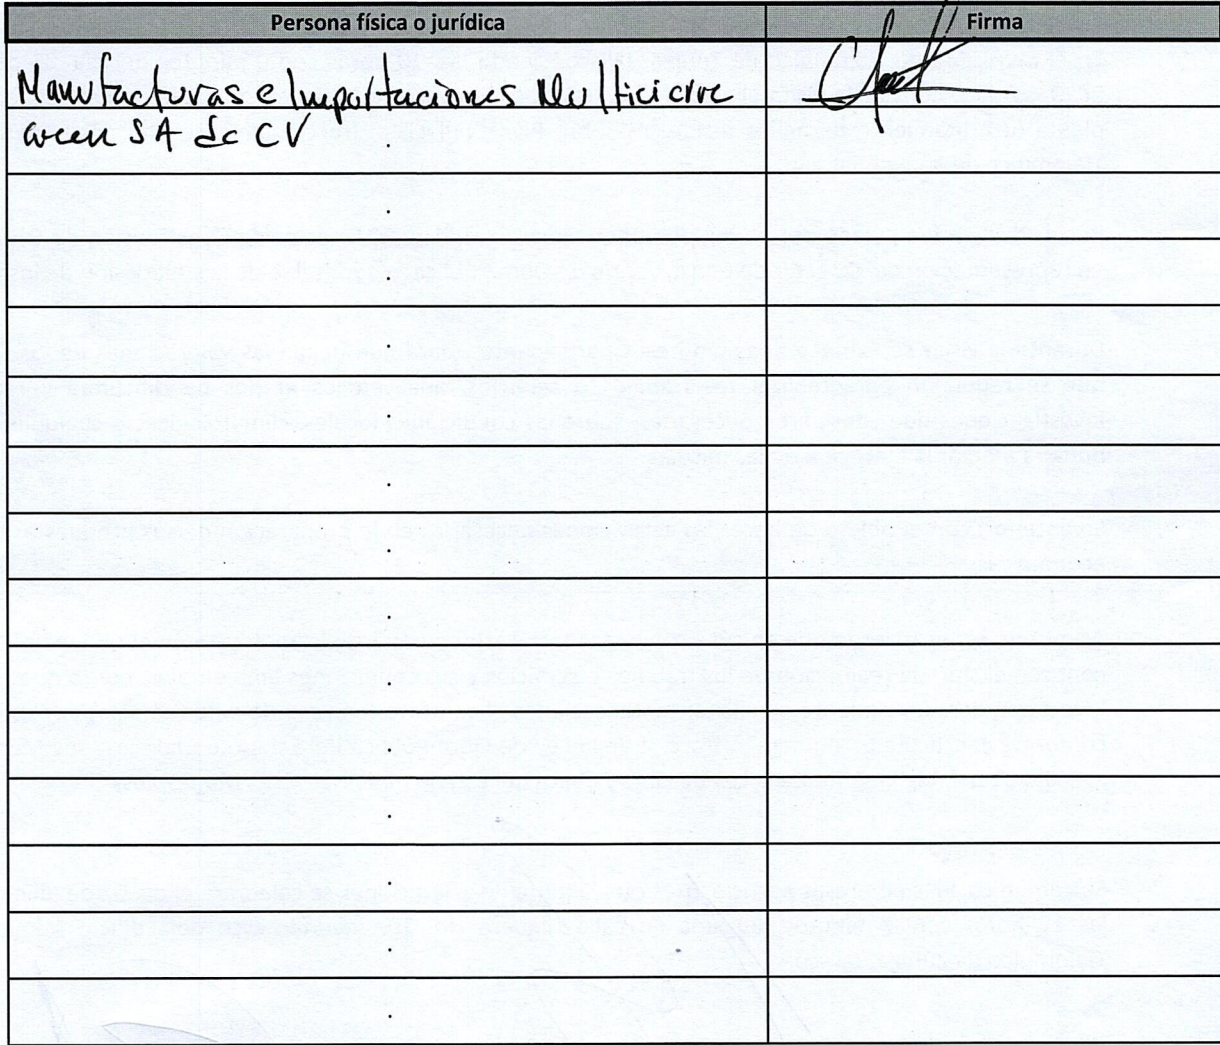 Persona física o jurídica
Firma
Manufacturas e Importaciones Multicierre
Green SA de CV